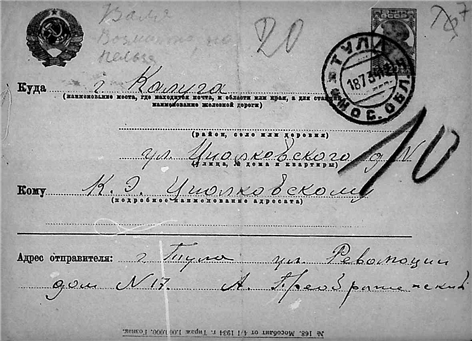 Валя
20
СССР
ТУЛА
МОС. ОБЛ.
Куда г Калуга
(наименование места, где находится почта, и области или края, а для станций
наименование железной дороги)
(район, село или деревня)
ул. Циолковского д. №
(улица, № дома и квартиры)
10
Кому К. Э. Циолковскому
(подробное наименование адресата)
Адрес отправителя: г Тула ул. Революции
дом № 17. А. Преображенский
№ 168. Мособлит от 4/I 1934 г. Тираж 1.000.000. Гознак.